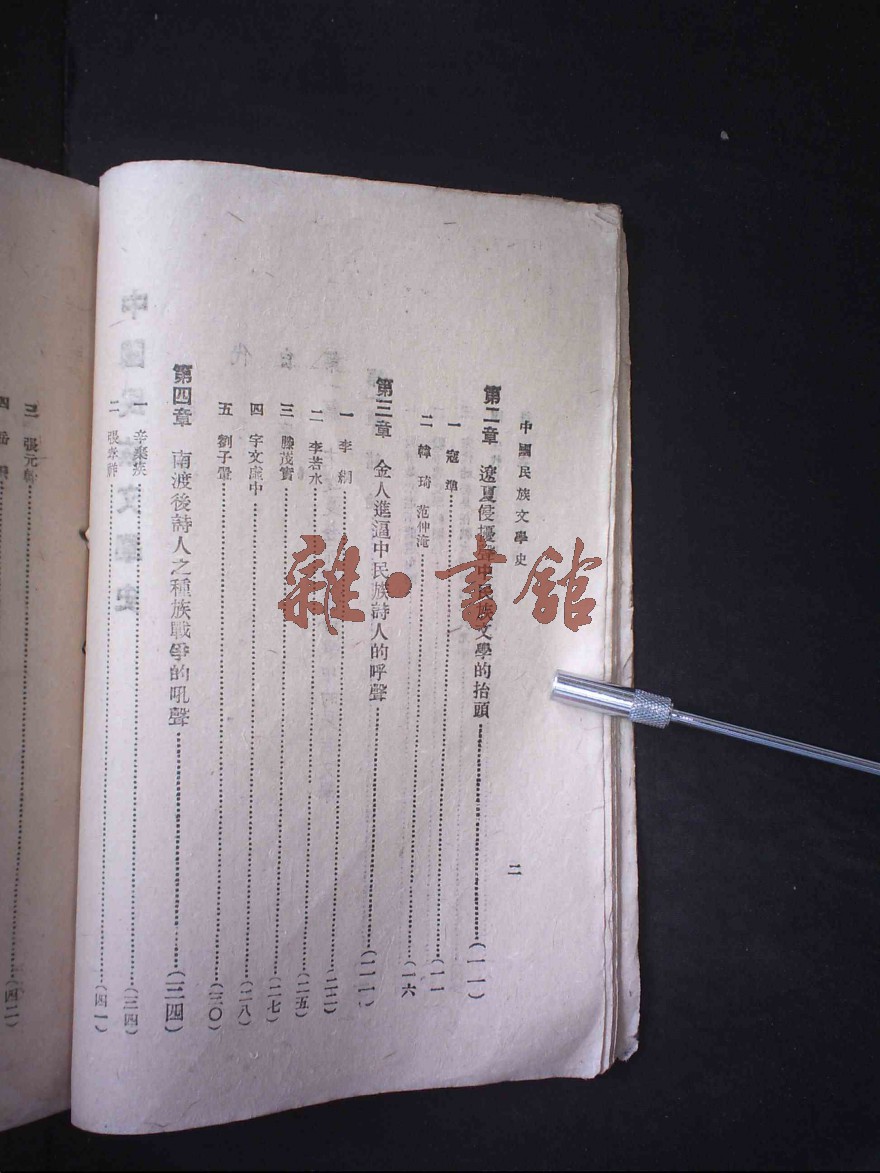 中國民族文學史
二
第二章 遼夏侵擾 中民族文學的抬頭……(一一)
一 寇準……(一一
二 韓琦 范仲淹……(一六
第三章 金人進逼中民族詩人的呼聲……
一 李綱……(二二)
二 李若水……(二五)
三 滕茂實……(二七)
四 宇文虛中……(二八)
五 劉子翬……(三〇)
第四章 南渡後詩人之種族戰爭的吼聲……(三四)
一 辛棄疾……(三四)
二 張孝祥……(四一)
三 張元幹……(四二)
四 岳
雜·書館